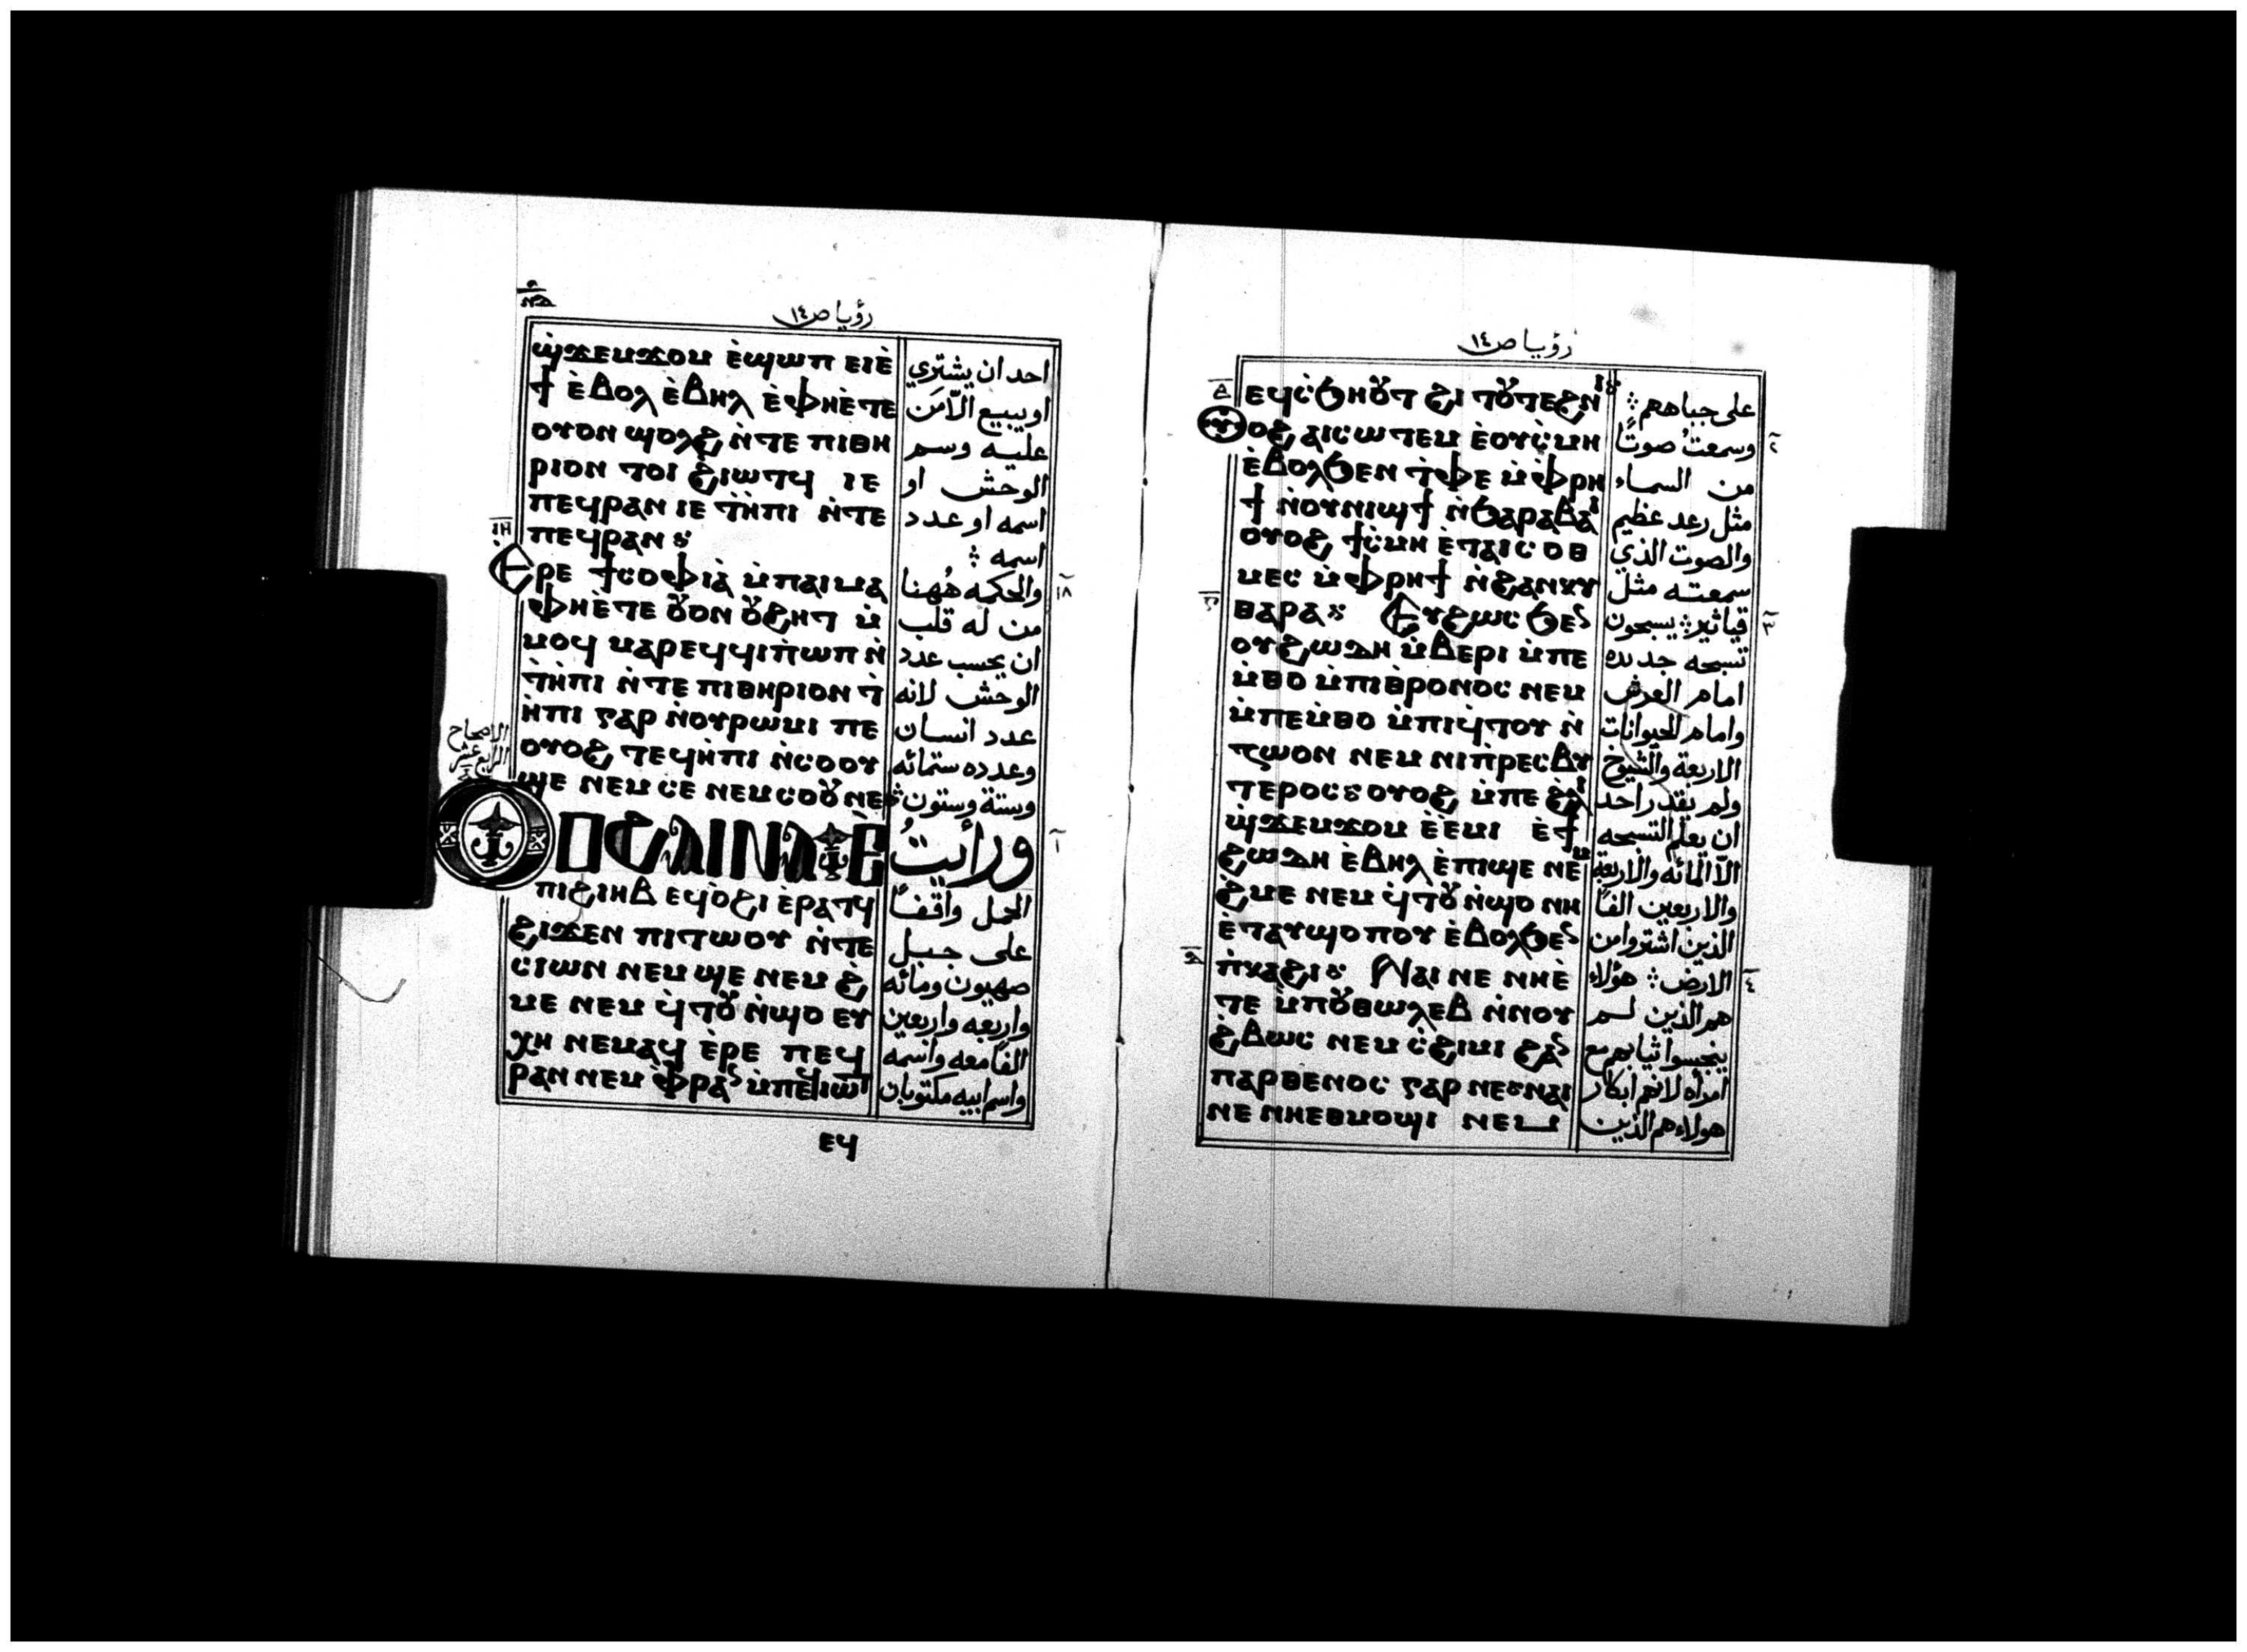 رؤيا ص١٤
ϣ̀ϫⲉⲙϫⲟⲙ ⲉ̀ϣⲱⲡ ⲉⲓⲉ̀
ϯ ⲉ̀ⲃⲟⲗ ⲉ̀ⲃⲏⲗ ⲉ̀ⲫⲏⲉ̀ⲧⲉ
ⲟⲩⲟⲛ ϣⲟⲗϩ ⲛ̀ⲧⲉ ⲡⲓⲑⲏ
ⲣⲓⲟⲛ ⲧⲟⲓ ϩ̀ⲓⲱⲧϥ ⲓⲉ
ⲡⲉϥⲣⲁⲛ ⲓⲉ ⲧ̀ⲏ̀ⲡⲓ ⲛ̀ⲧⲉ
ⲡⲉϥⲣⲁⲛ
Ⲉⲣⲉ ϯⲥⲟⲫⲓⲁ̀ ⲙ̀ⲡⲁⲓⲙⲁ
ⲫⲏⲉ̀ⲧⲉ ⲟⲩⲟⲛ ⲟⲩϩⲏⲧ ⲙ̀
ⲙⲟϥ ⲙⲁⲣⲉϥϥⲓⲡ̀ⲱⲡ ⲛ̀
ⲧ̀ⲏ̀ⲡⲓ ⲛ̀ⲧⲉ ⲡⲓⲑⲏⲣⲓⲟⲛ ⲧ̀
ⲏ̀ⲡⲓ ⲅⲁⲣ ⲛ̀ⲟⲩⲣⲱⲙⲓ ⲡⲉ
ⲟⲩⲟϩ ⲧⲉϥⲏ̀ⲡⲓ ⲛ̀ⲥⲟⲟⲩ
ϣⲉ ⲛⲉⲙ ⲥⲉ ⲛⲉⲙ ⲥⲟⲟⲩ ⲛⲉ
Ⲟⲩⲟϩ ⲁⲓⲛⲁⲩ ⲉ̀
ⲡⲓϩⲓⲏⲃ ⲉϥⲟ̀ϩⲓ ⲉ̀ⲣⲁⲧϥ
ϩⲓϫⲉⲛ ⲡⲓⲧⲱⲟⲩ ⲛ̀ⲧⲉ
ⲥⲓⲱⲛ ⲛⲉⲙ ϣⲉ ⲛⲉⲙ ϩ̀
ⲙⲉ ⲛⲉⲙ ϥ̀ⲧⲟⲩ ⲛ̀ϣⲟ ⲉⲩ
ⲭⲏ ⲛⲉⲙⲁϥ ⲉ̀ⲣⲉ ⲡⲉϥ
ⲣⲁⲛ ⲛⲉⲙ ⲫ̀ⲣⲁⲛ ⲙ̀ⲡⲉϥⲓⲱⲧ
ⲉϥ
احد ان يشتري
او يبيع الّا مَن
عليه وسم
الوحش او
اسمه او عدد
اسمه
والحكمه هُهنا
من له قلب
ان يحسب عدد
الوحش لانه
عدد انسان
وعدده ستمائه
وستة وستون
ورأيتُ
الحمل واقفًا
على جبل
صهيون ومائه
واربعه واربعين
الفًا معه واسمه
واسم ابيه مكتوبان
١٨
١
الاصحاح
الرابع عشر
رؤيا ص١٤
ⲉϥⲥ̀ϧⲏⲟⲩⲧ ϩⲓ ⲧⲟⲩⲧⲉϩⲛⲓ
Ⲟⲩⲟϩ ⲁⲓⲥⲱⲧⲉⲙ ⲉ̀ⲟⲩⲥ̀ⲙⲏ
ⲉ̀ⲃⲟⲗϧⲉⲛ ⲧ̀ⲫⲉ ⲙ̀ⲫⲣⲏ
ϯ ⲛ̀ⲟⲩⲛⲓϣϯ ⲛ̀ϧⲁⲣⲁⲃⲁⲓ
ⲟⲩⲟϩ ϯⲥ̀ⲙⲏ ⲉ̀ⲧⲁⲓⲥⲟⲑ
ⲙⲉⲥ ⲙ̀ⲫⲣⲏϯ ⲛ̀ϩⲁⲛⲕⲩ
ⲑⲁⲣⲁ Ⲉⲩϩⲱⲥ ϧⲉⲛ
ⲟⲩϩⲱⲇⲏ ⲙ̀ⲃⲉⲣⲓ ⲙ̀ⲡⲉ
ⲙ̀ⲑⲟ ⲙ̀ⲡⲓⲑⲣⲟⲛⲟⲥ ⲛⲉⲙ
ⲙ̀ⲡⲉⲙ̀ⲑⲟ ⲙ̀ⲡⲓϥ̀ⲧⲟⲩ ⲛ̀
ⲍⲱⲟⲛ ⲛⲉⲙ ⲛⲓⲡ̀ⲣⲉⲥⲃⲩ
ⲧⲉⲣⲟⲥ ⲟⲩⲟϩ ⲙ̀ⲡⲉ ϩⲗⲓ
ϣ̀ϫⲉⲙϫⲟⲙ ⲉ̀ⲉ̀ⲙⲓ ⲉ̀ϯ
ϩⲱⲇⲏ ⲉ̀ⲃⲏⲗ ⲉ̀ⲡⲓϣⲉ ⲛⲉⲙ
ϩ̀ⲙⲉ ⲛⲉⲙ ϥ̀ⲧⲟⲩ ⲛ̀ϣⲟ ⲛⲏ
ⲉ̀ⲧⲁⲩϣⲟⲡⲟⲩ ⲉ̀ⲃⲟⲗϧⲉⲛ
ⲡ̀ⲕⲁϩⲓ Ⲛⲁⲓ ⲛⲉ ⲛⲏⲉ̀
ⲧⲉ ⲙ̀ⲡⲟⲩⲑⲱⲗⲉⲃ ⲛ̀ⲛⲟⲩ
ϩ̀ⲃⲱⲥ ⲛⲉⲙ ⲥ̀ϩⲓⲙⲓ ϩⲁⲛ
ⲡⲁⲣⲑⲉⲛⲟⲥ ⲅⲁⲣ ⲛⲉ ⲛⲁⲓ
ⲛⲉ ⲛⲏⲉⲑⲙⲟϣⲓ ⲛⲉⲙ
على جباههم
وسمعتُ صوتًا
من السماء
مثل رعد عظيم
والصوت الذي
سمعته مثل
قياثير يسبحون
تسبحه جديده
امام العرش
وامام الحيوانات
الاربعة والشيوخ
ولم يقدر احد
ان يعلم التسبحه
الّا المائه والاربعة
والاربعين الفًا
الذين اشتروا من
الارض هؤلاء
هم الذين لم
ينجسوا ثيابهم مع
امرأه لانهم ابكار
هولاء هم الذين
٢
٣
٤